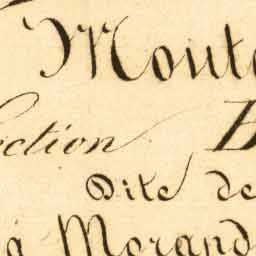 Mout
ection
Dite de
à Morand